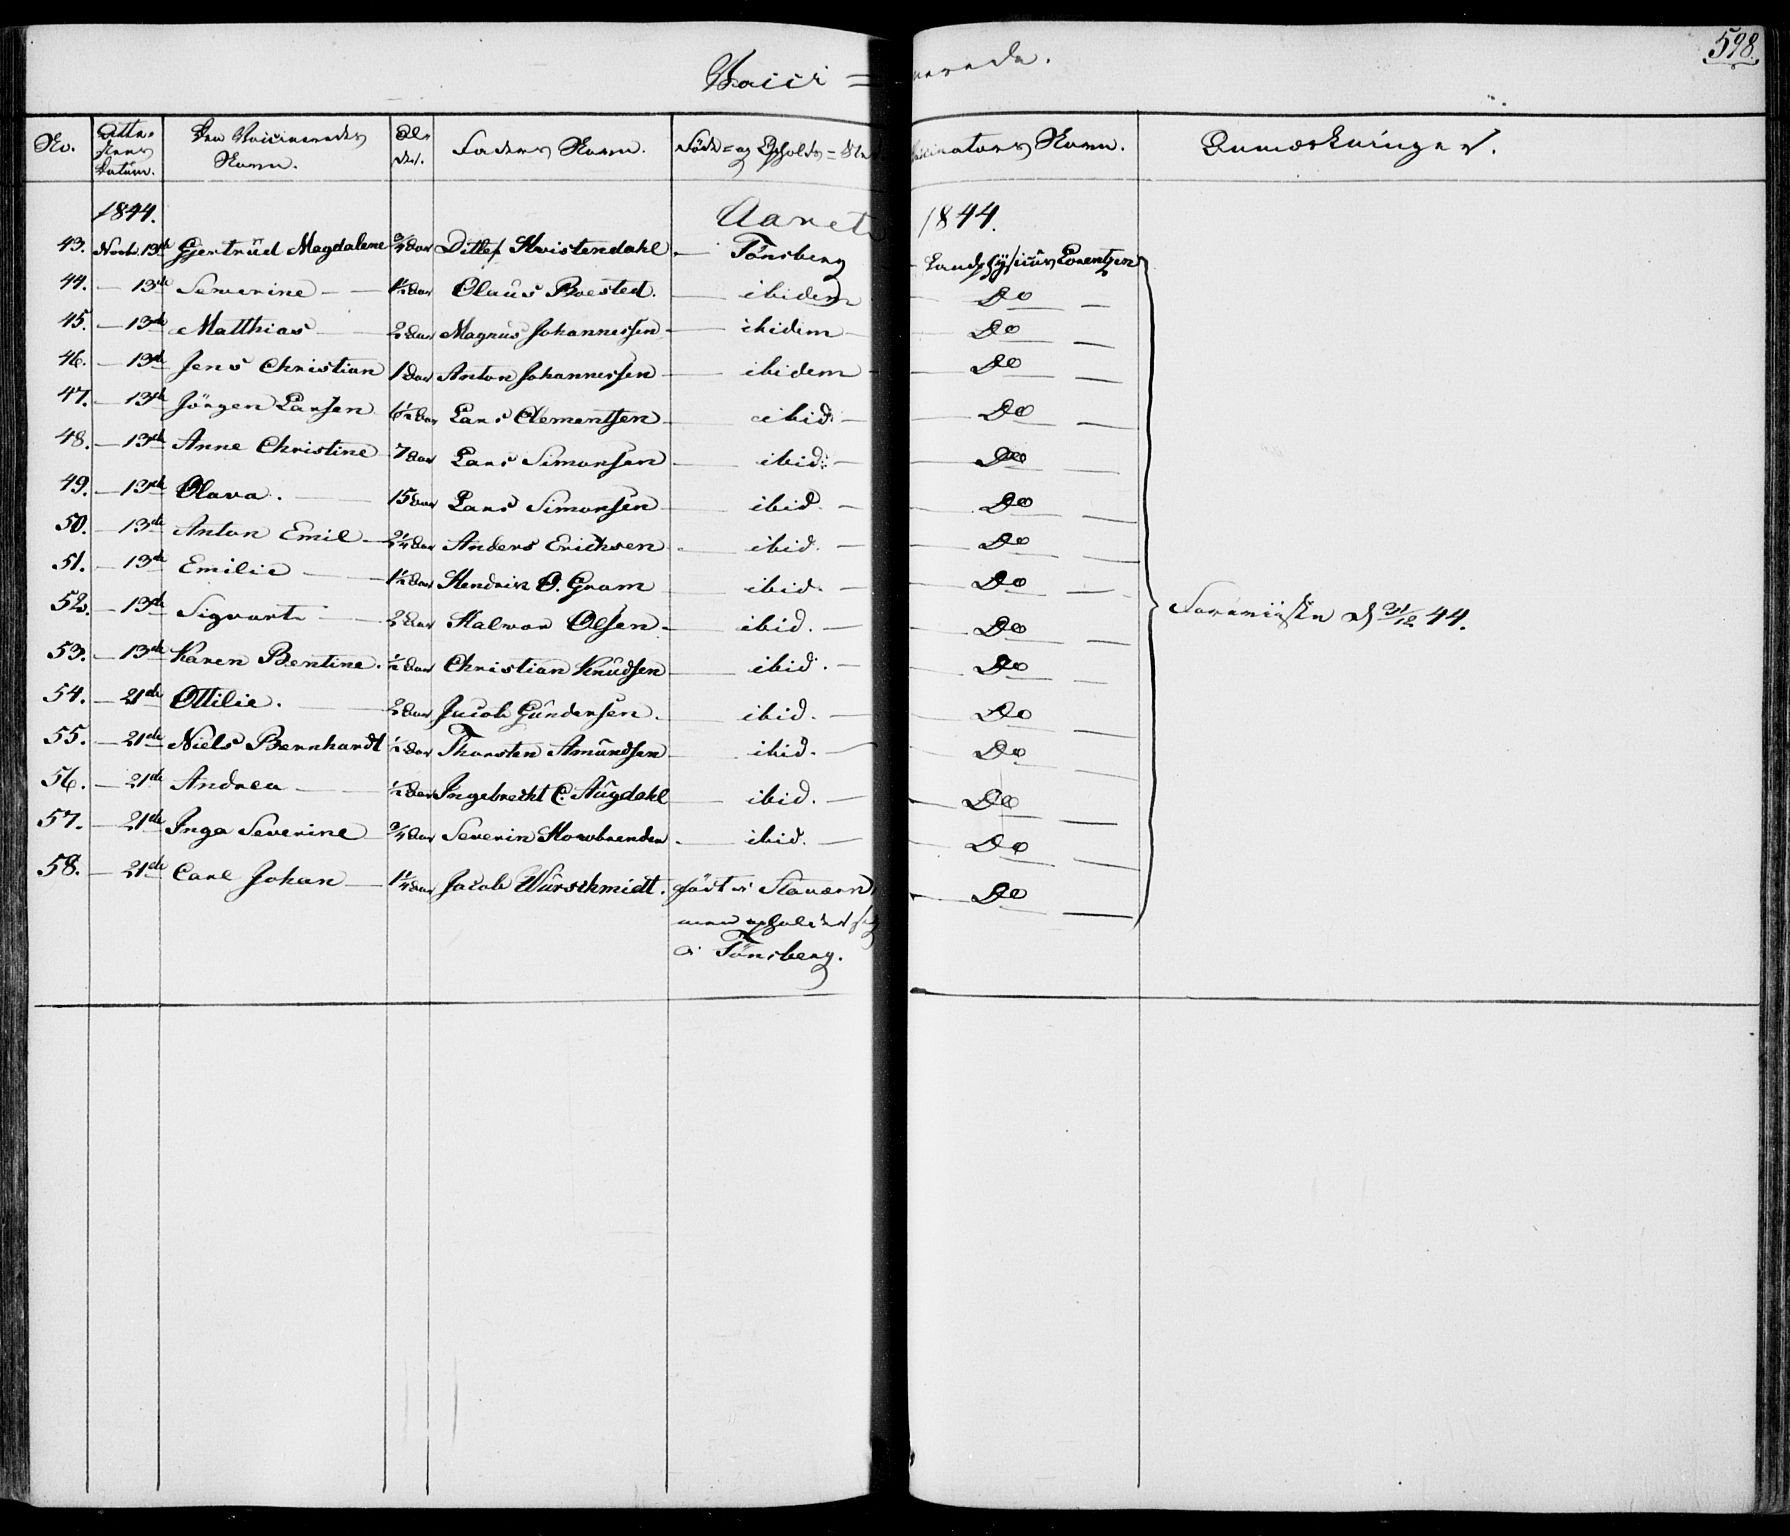 Vacci = nerede.
598.
No. Attestens Datum. Den Vaccineredes Navn. Alder. Faders Navn. Føde = og Opholds = Sted Vaccinators Navn. Anmærkninger.
1844. Aaret 1844.
43. Novb. 13de Gjertrüd Magdalene 3/4 Aar Ditlef Kvistendahl — Tönsberg — Landphysicüs Lorentzen
44. — 13de Severine — 1 1/2 Aar Olaüs Boested. — ibidem — Do —
45. — 13de Matthias — 2 Aar Magnus Johannessen — ibidem — Do —
46. — 13de Jens Christian 1 Aar Anton Johannessen — ibidem — Do —
47. — 13de Jörgen Larsen 6 1/2 Aar Lars Clementsen — ibid: — Do —
48. — 13de Anne Christine 7 Aar Lars Simonsen — ibid: — Do —
49. — 13de Olava. — 15 Aar Lars Simonsen — ibid. — Do —
50. — 13de Anton Emil — 2 1/4 Aar Anders Erichsen — ibid. — Do —
51. — 13de Emilie — 1 1/2 Aar Hendrik O. Gram — ibid. — Do —
52. — 13de Sigvart — Aar Halvor Olsen — ibid. — Do — Foranviste d 31/12 44.
53. — 13de Karen Bentine. 1/2 Aar Christian Knüdsen — ibid. — Do —
54. — 21de Ottilie. — Aar Jacob Gündersen. — ibid. — Do —
55. — 21de Niels Bernhardt 1/2 Aar Thorsten Amündsen — ibid. — Do —
56. — 21de Andrea — 1/2 Aar Ingebrecht C. Aügdahl — ibid. — Do —
57. — 21de Inga Severine — 3/4 Aar Severin Howbrenden — ibid. — Do —
58. — 21de Carl Johan — 1 1/4 Aar Jacob Würschmidt. födt i Stavern — Do —
men opholder sig
i Tönsberg.